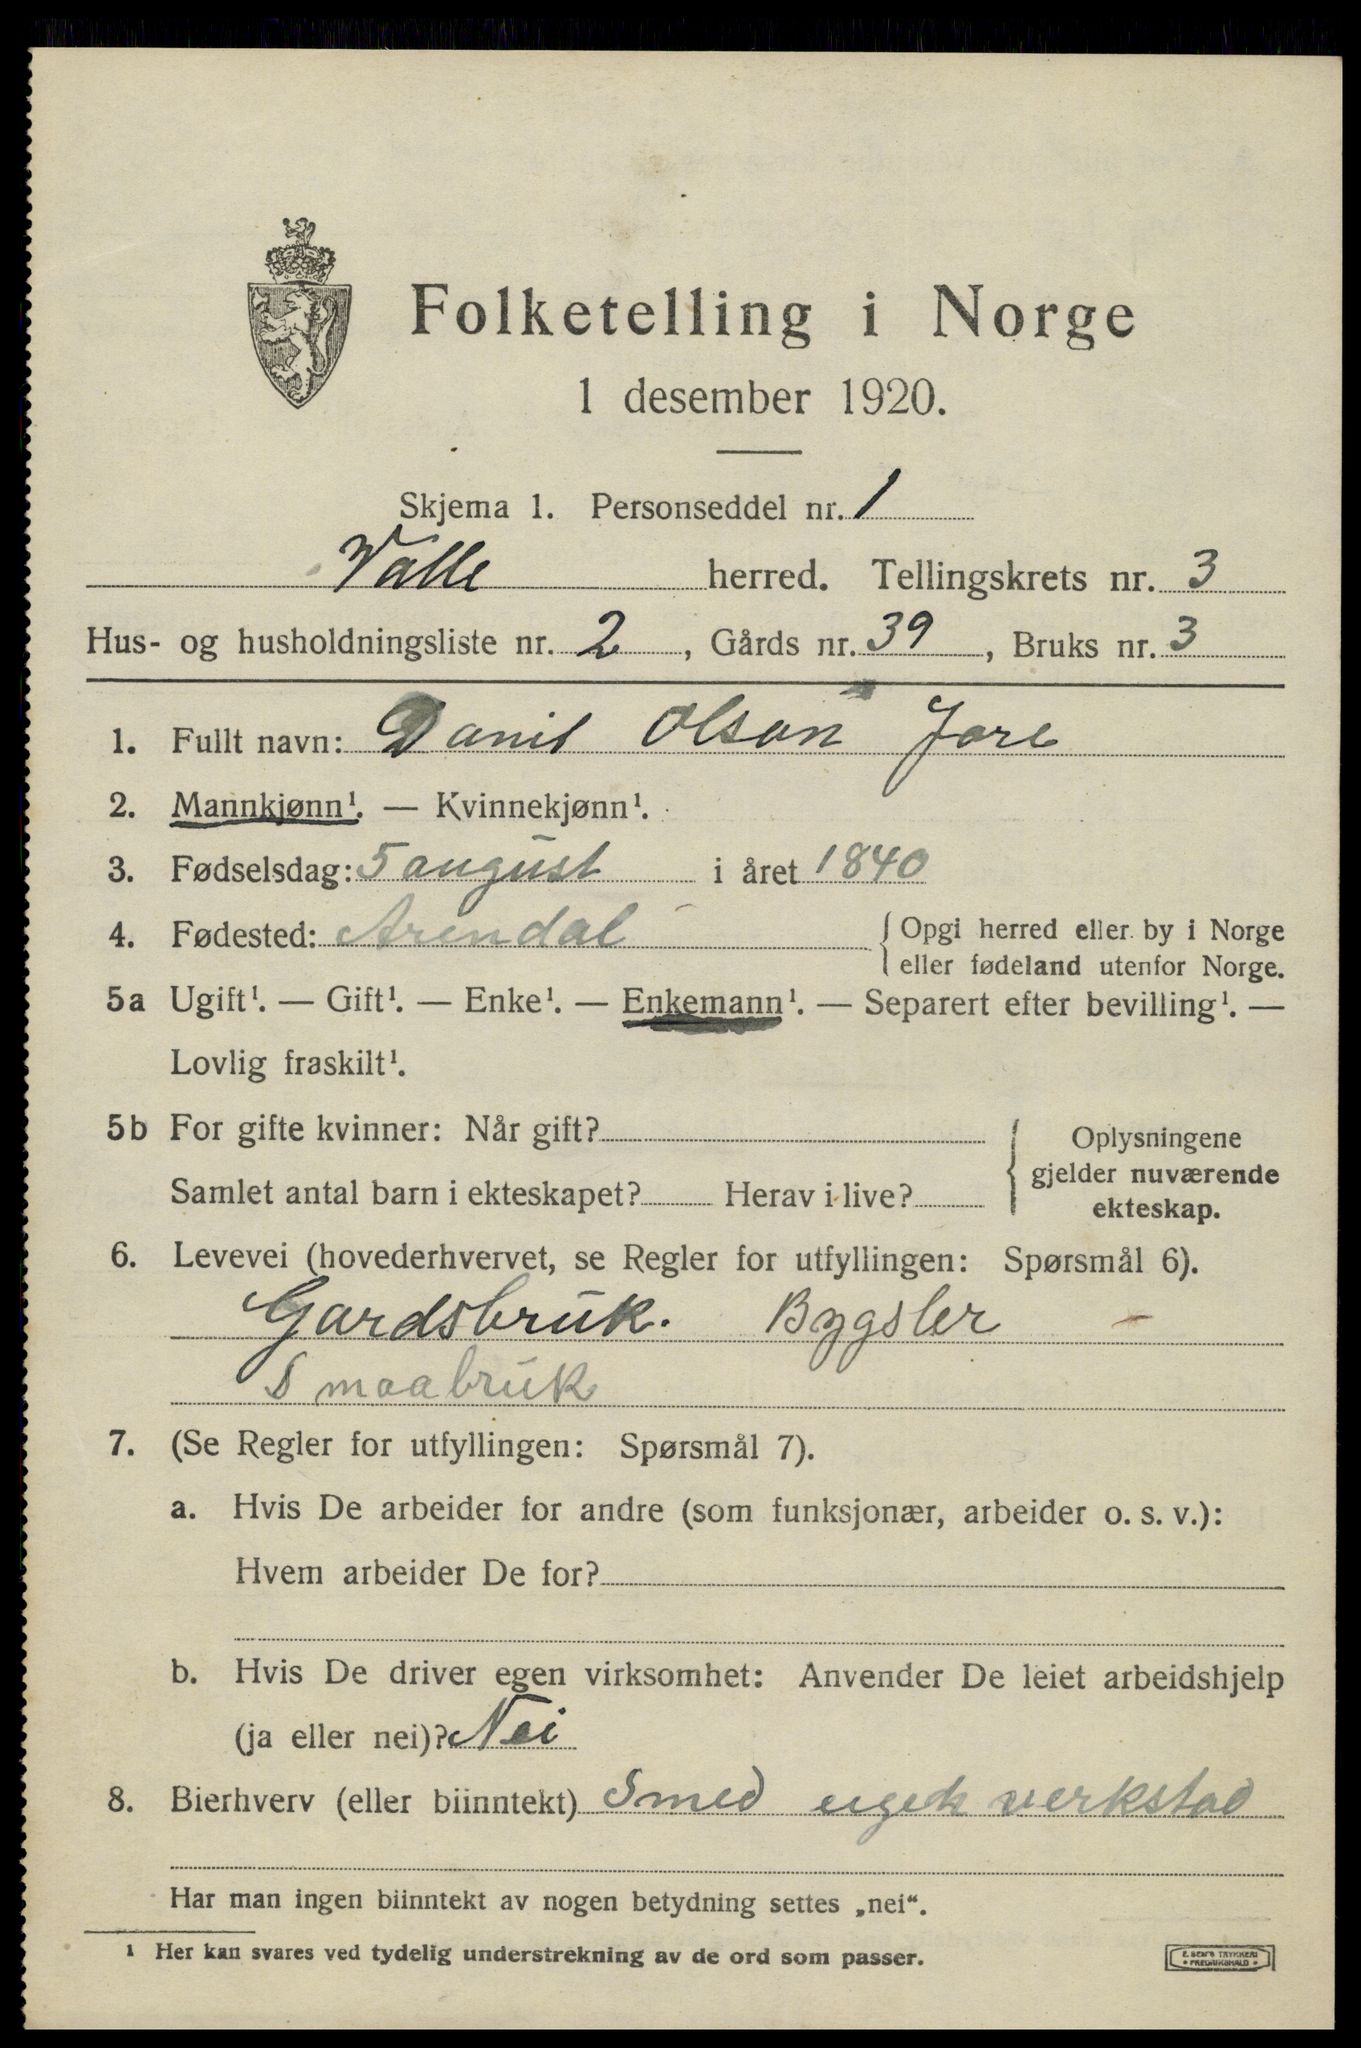 Folketelling i Norge
1 desember 1920.
Skjema 1. Personseddel nr. 1
Valle herred. Tellingskrets nr. 3
Hus- og husholdningsliste nr. 2, Gårds nr. 39, Bruks nr. 3
1. Fullt navn: Danil Olson Jore
2. Mannkjønn¹. — Kvinnekjønn¹.
3. Fødselsdag: 5 august i året 1840
4. Fødested: Arendal { Opgi herred eller by i Norge
eller fødeland utenfor Norge.
5a Ugift¹. — Gift¹. — Enke¹. — Enkemann¹. — Separert efter bevilling¹. —
Lovlig fraskilt¹.
5b For gifte kvinner: Når gift?
Samlet antal barn i ekteskapet? Herav i live?
{ Oplysningene
gjelder nuværende
ekteskap.
6. Levevei (hovederhvervet, se Regler for utfyllingen: Spørsmål 6).
Gardsbruk. Bygsler
Smaabruk
7. (Se Regler for utfyllingen: Spørsmål 7).
a. Hvis De arbeider for andre (som funksjonær, arbeider o. s. v.):
Hvem arbeider De for?
b. Hvis De driver egen virksomhet: Anvender De leiet arbeidshjelp
(ja eller nei)? Nei
8. Bierhverv (eller biinntekt) Smed eigen verkstad
Har man ingen biinntekt av nogen betydning settes „nei“.
¹ Her kan svares ved tydelig understrekning av de ord som passer.
E. SEM'S TRYKKERI
• FREDRIKSHALD •